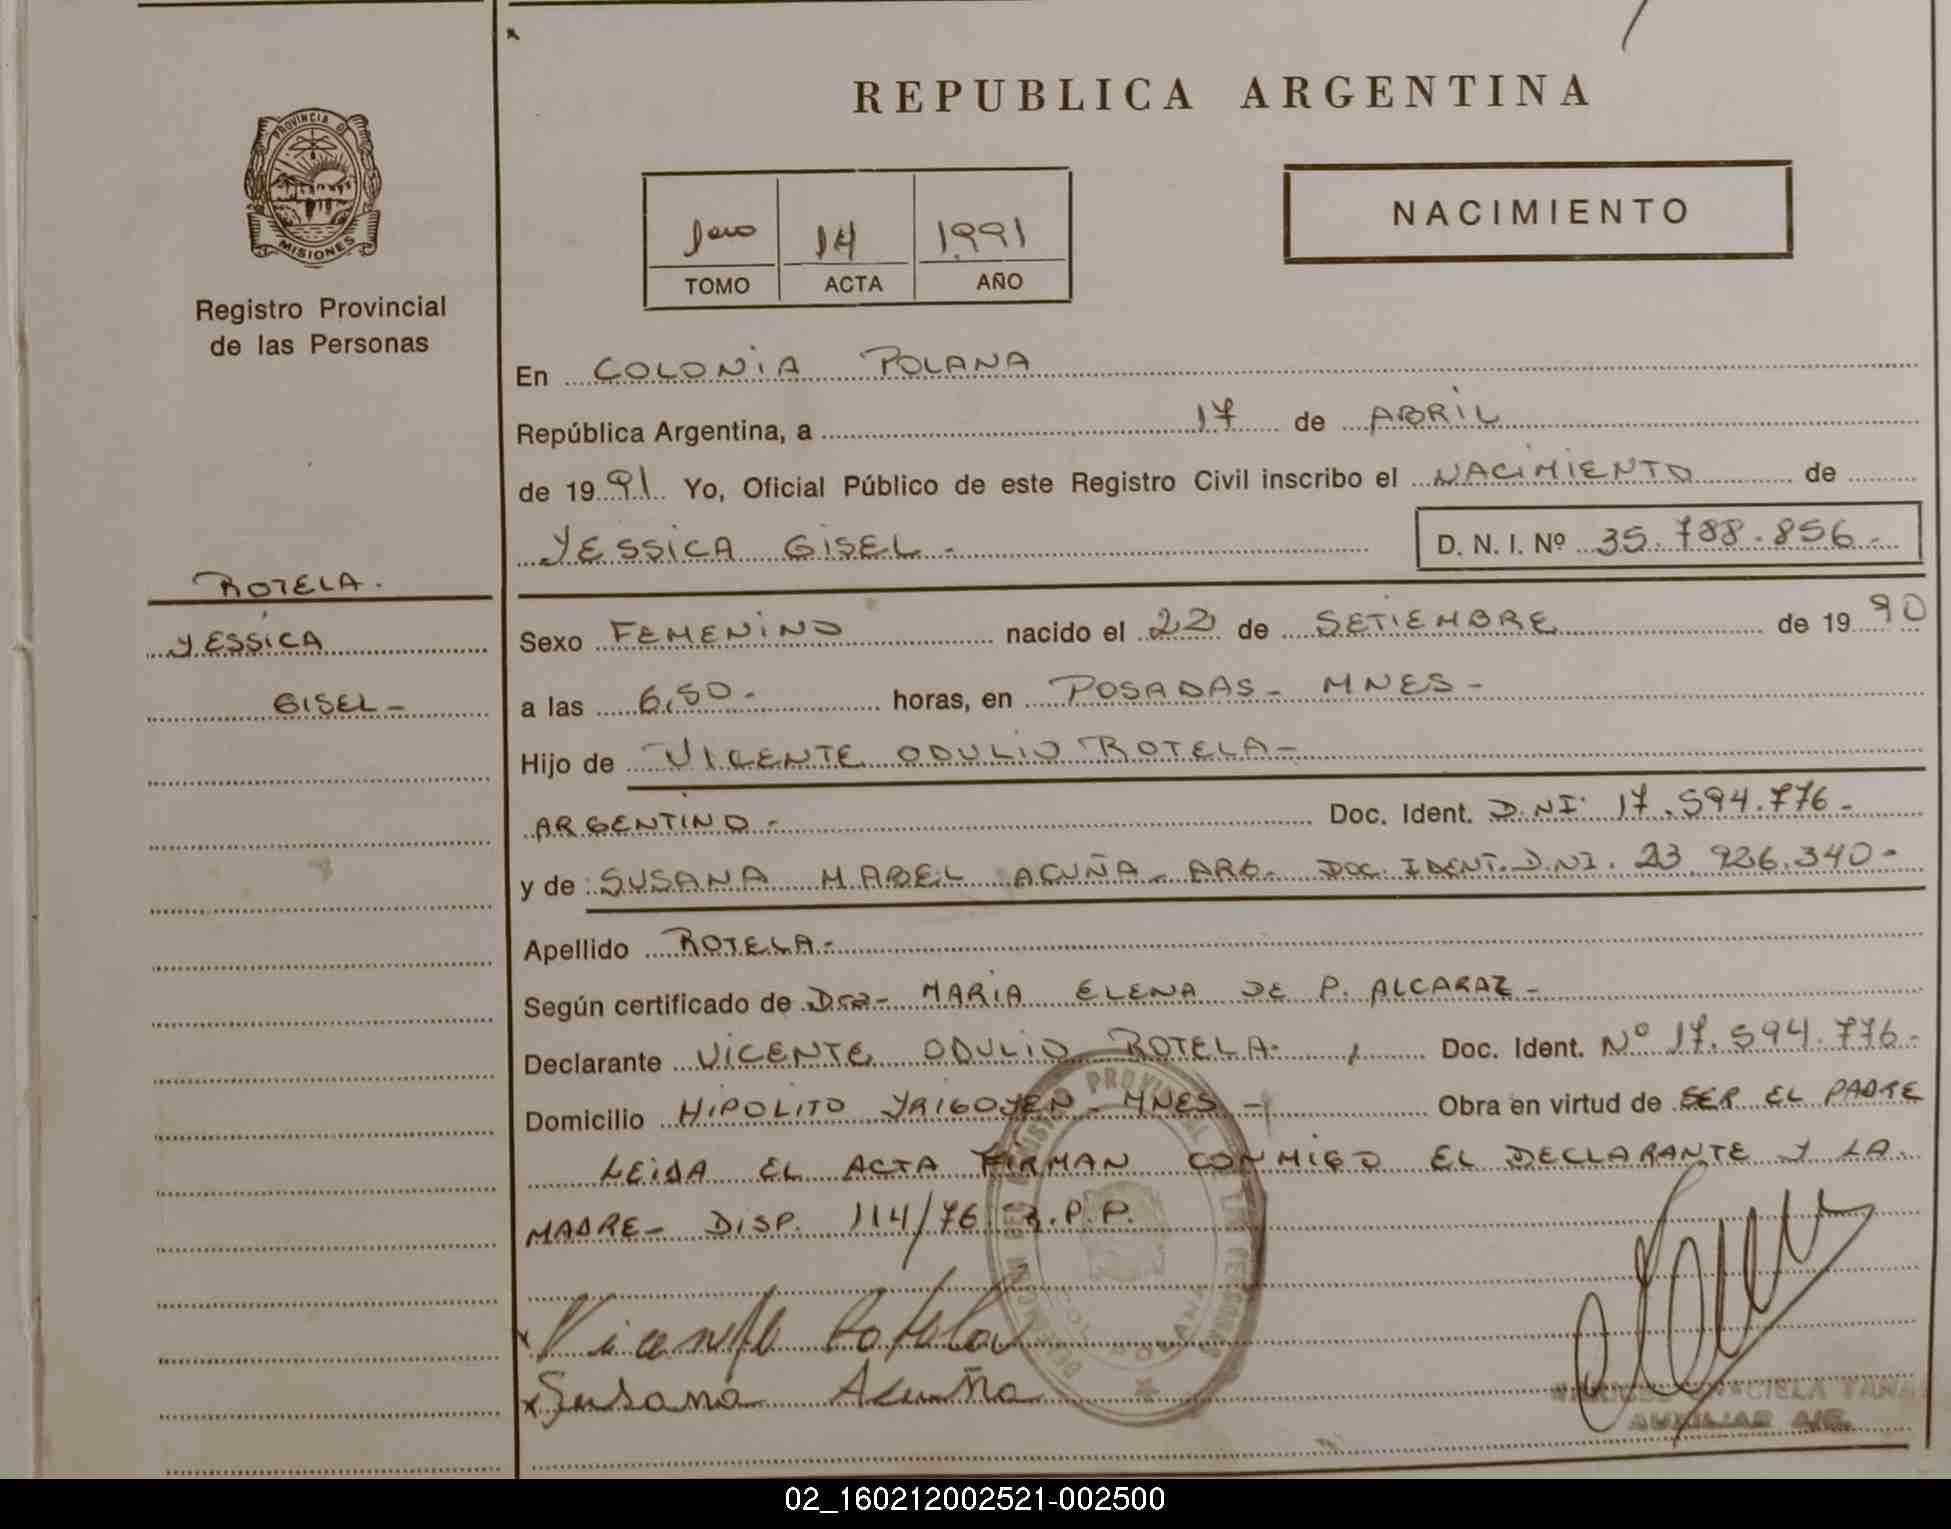 REPUBLICA ARGENTINA
PROVINCIA DE
MISIONES
Registro Provincial
de las Personas
1ero 14 1991
TOMO ACTA AÑO
NACIMIENTO
En COLONIA POLANA
República Argentina, a 17 de ABRIL
de 1991 Yo, Oficial Público de este Registro Civil inscribo el NACIMIENTO de
YESSICA GISEL - D. N. I. Nº 35.788.856.-
ROTELA.
YESSICA
GISEL -
Sexo FEMENINO nacido el 22 de SETIEMBRE de 1990
a las 6,50.- horas, en POSADAS - MNES -
Hijo de VICENTE ODULIO ROTELA -
ARGENTINO.- Doc. Ident. D.NI. 17.594.776.-
y de SUSANA MABEL ACUÑA - ARG. DOC. IDENT. D.NI. 23 926.340-
Apellido ROTELA.-
Según certificado de Dra- MARIA ELENA DE P. ALCARAZ -
Declarante VICENTE ODULIO ROTELA. Doc. Ident. Nº 17.594.776-
Domicilio HIPOLITO YRIGOYEN - MNES - Obra en virtud de SER EL PADRE
LEIDA EL ACTA FIRMAN CONMIGO EL DECLARANTE Y LA
MADRE - DISP. 114/76 R.P.P.
Vicente Rotela
Susana Acuña
AUXILIAR
02_160212002521-002500